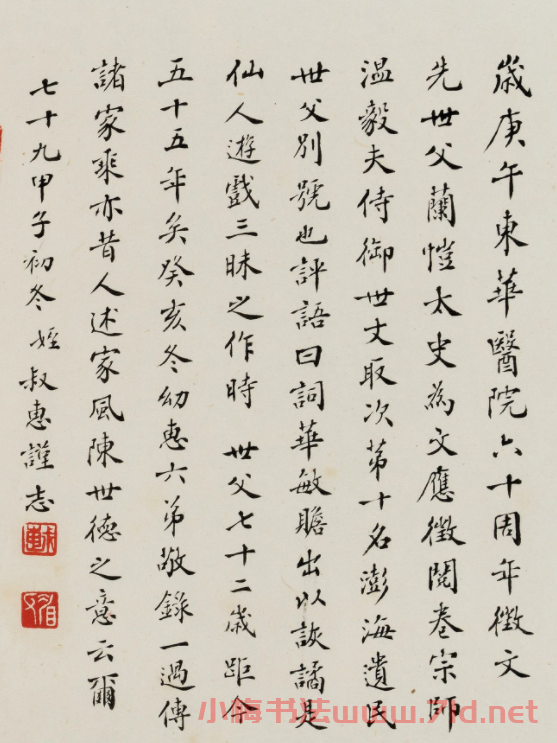 歲庚午東華醫院六十周年徵文
先世父蘭愷太史為文應徵閱卷宗師
温毅夫侍御世丈取次第十名澎海遺民
世父別號也評語曰詞華敏贍出以詼譎是
仙人遊戲三昧之作時 世父七十二歲距今
五十五年矣癸亥冬幼惠六弟敬錄一過傳
諸家乘亦昔人述家風陳世德之意云爾
七十九甲子初冬姪叔惠謹志
小梅书法www.71d.net